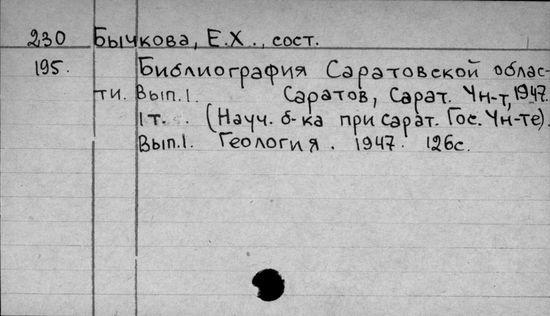 230 Бычкова, Е.Х., сост.
195. Библиография Саратовской облас-
ти. Вып.1. Саратов, Сарат. Ун-т, 1947.
1т. (Науч. б-ка при Сарат. Гос. Ун-те).
Вып.1. Геология. 1947. 126с.